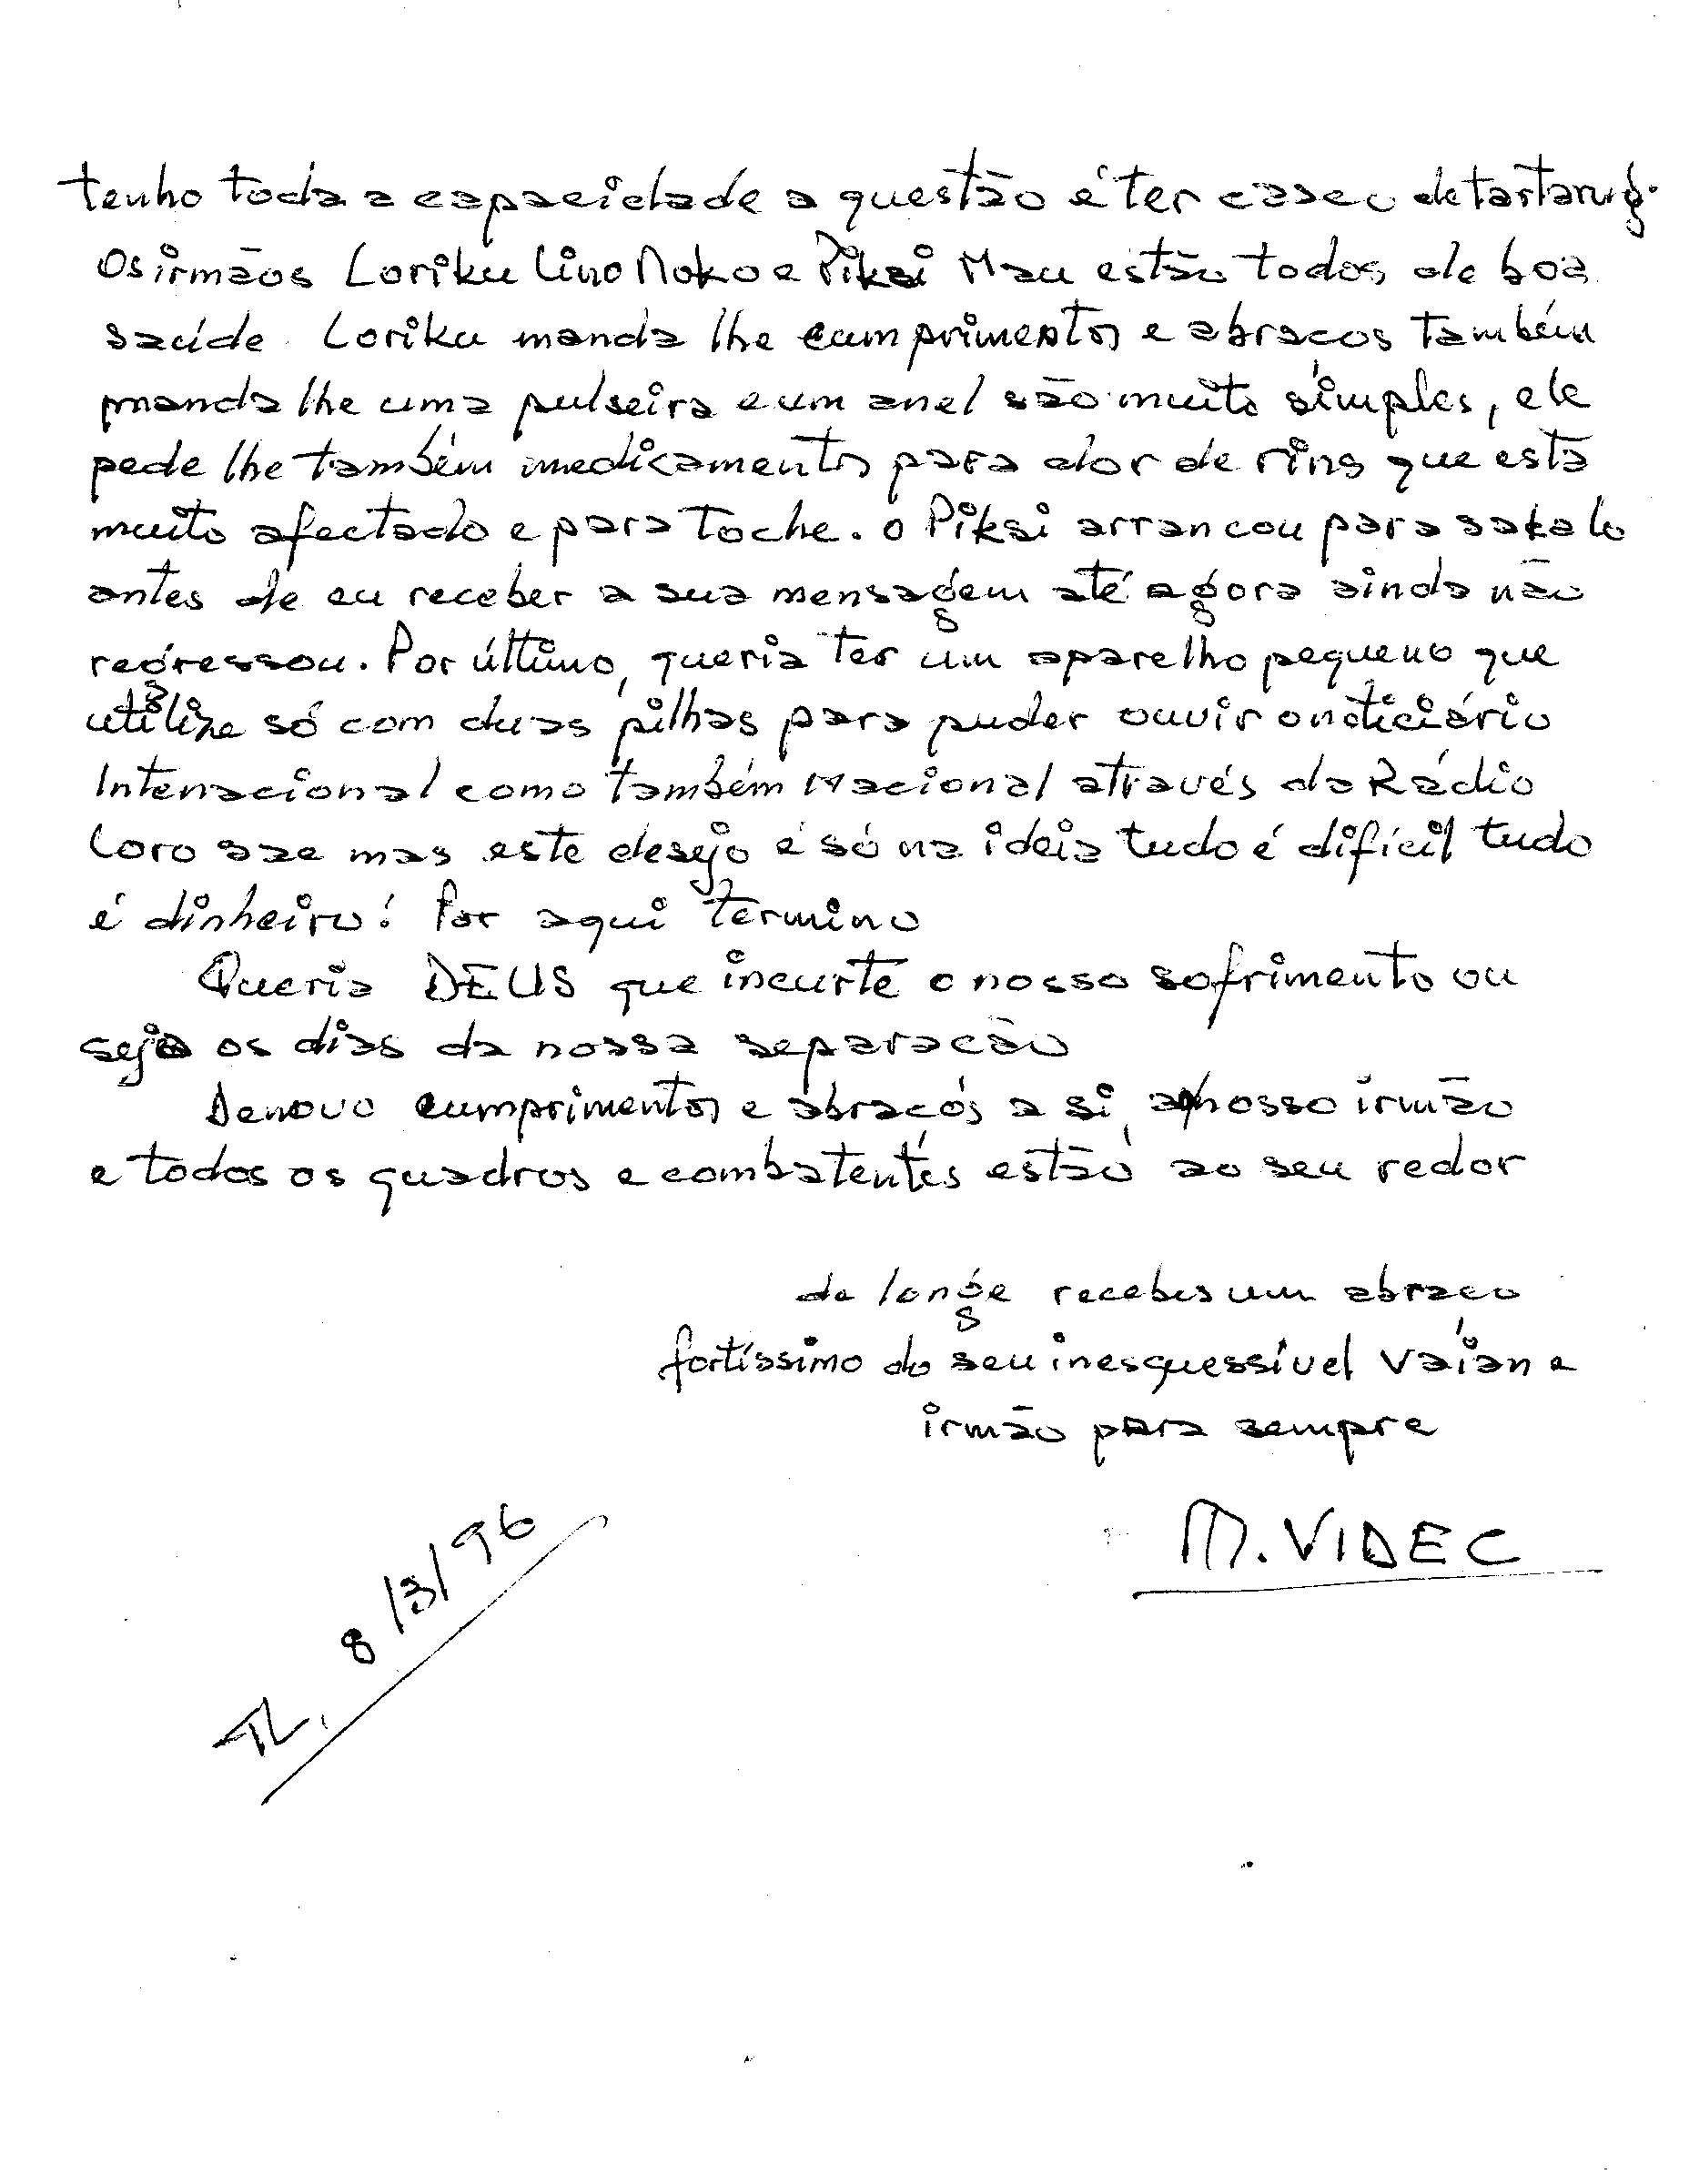 tenho toda a capacidade a questão é ter casco de tartarug.
Os irmãos Loriku Lino Noko e Piksi Mau estão todos de boa
saúde. Loriku manda lhe cumprimentos e abraços também
manda lhe uma pulseira e um anel são muito simples, ele
pede lhe também medicamentos para dor de rins que está
muito afectado e para Toche. O Piksi arrancou para sakalo
antes de eu receber a sua mensagem até agora ainda não
regressou. Por último, queria ter um aparelho pequeno que
utilize só com duas pilhas para puder ouvir o noticiário
Intenacional como também Nacional através da Rádio
Loro sae mas este desejo é só na ideia tudo é difícil tudo
é dinheiro! Por aqui termino
Queria DEUS que incurte o nosso sofrimento ou
seja os dias da nossa separação
Denovo cumprimentos e abraços a si, nosso irmão
e todos os quadros e combatentes estão ao seu redor
de longe recebes um abraço
fortíssimo do seu inesquessível vaian e
irmão para sempre
M. VIDEC
TL, 8/3/96